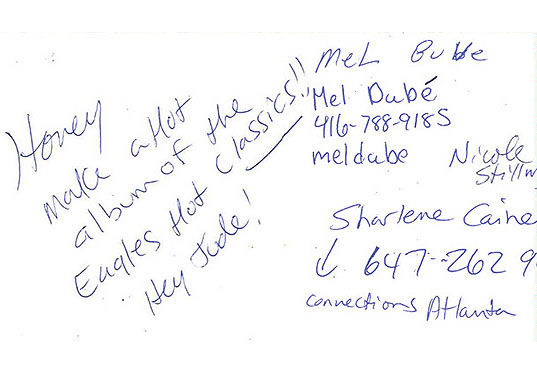 Honey
make a Hot
album of the
Eagles Hot Classics!!
Hey Jude!
Mel Bubbe
Mel Dubé
416-788-9185
meldube
Nicole
Stillw
Sharlene Caine
↓ 647-262 9
connections Atlanta